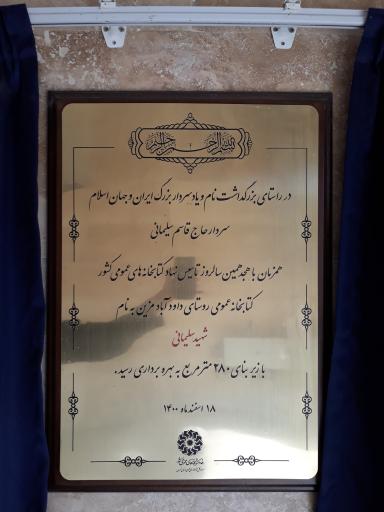 بسم الله الرحمن الرحیم
در راستای بزرگداشت نام و یاد سردار بزرگ ایران و جهان اسلام
سردار حاج قاسم سلیمانی
همزمان با هجدهمین سالروز تاسیس نهاد کتابخانه های عمومی کشور
کتابخانه عمومی روستای داود آباد مزین به نام
شهید سلیمانی
با زیر بنای ۲۸۰ متر مربع به بهره برداری رسید.
۱۸ اسفند ماه ۱۴۰۰